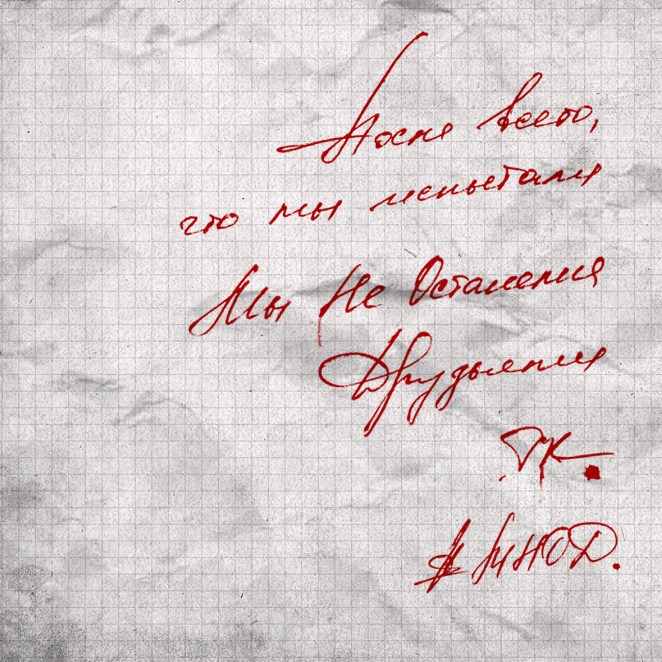 После всего,
что мы испытали
Мы Не Останемся
Друзьями
ТК.
# МНОД.